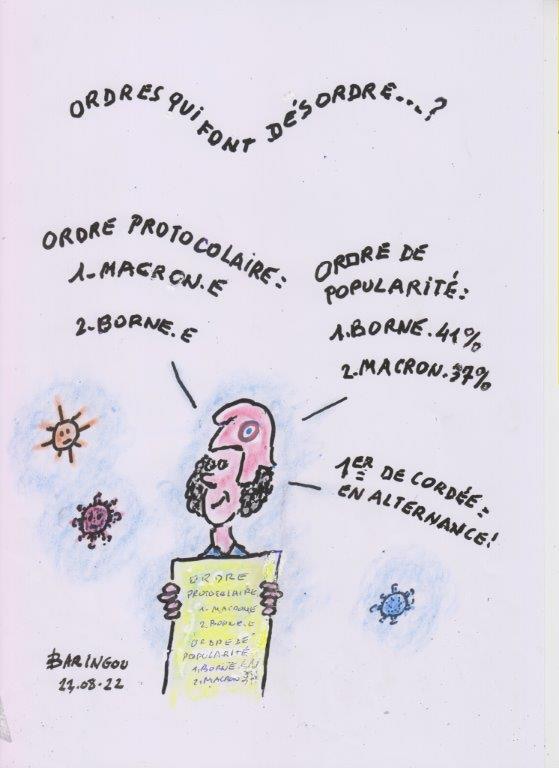 ORDRES QUI FONT DÉSORDRE....?
ORDRE PROTOCOLAIRE:
1-MACRON.E
2-BORNE.E
ORDRE DE
POPULARITÉ:
1.BORNE.41%
2.MACRON.37%
1ER DE CORDÉE:
EN ALTERNANCE!
ORDRE
PROTOCOLAIRE
1-MACRON.E
2.BORNE.E
ORDRE DE
POPULARITÉ
1.BORNE
2.MACRON
BARINGOU
21.08-22